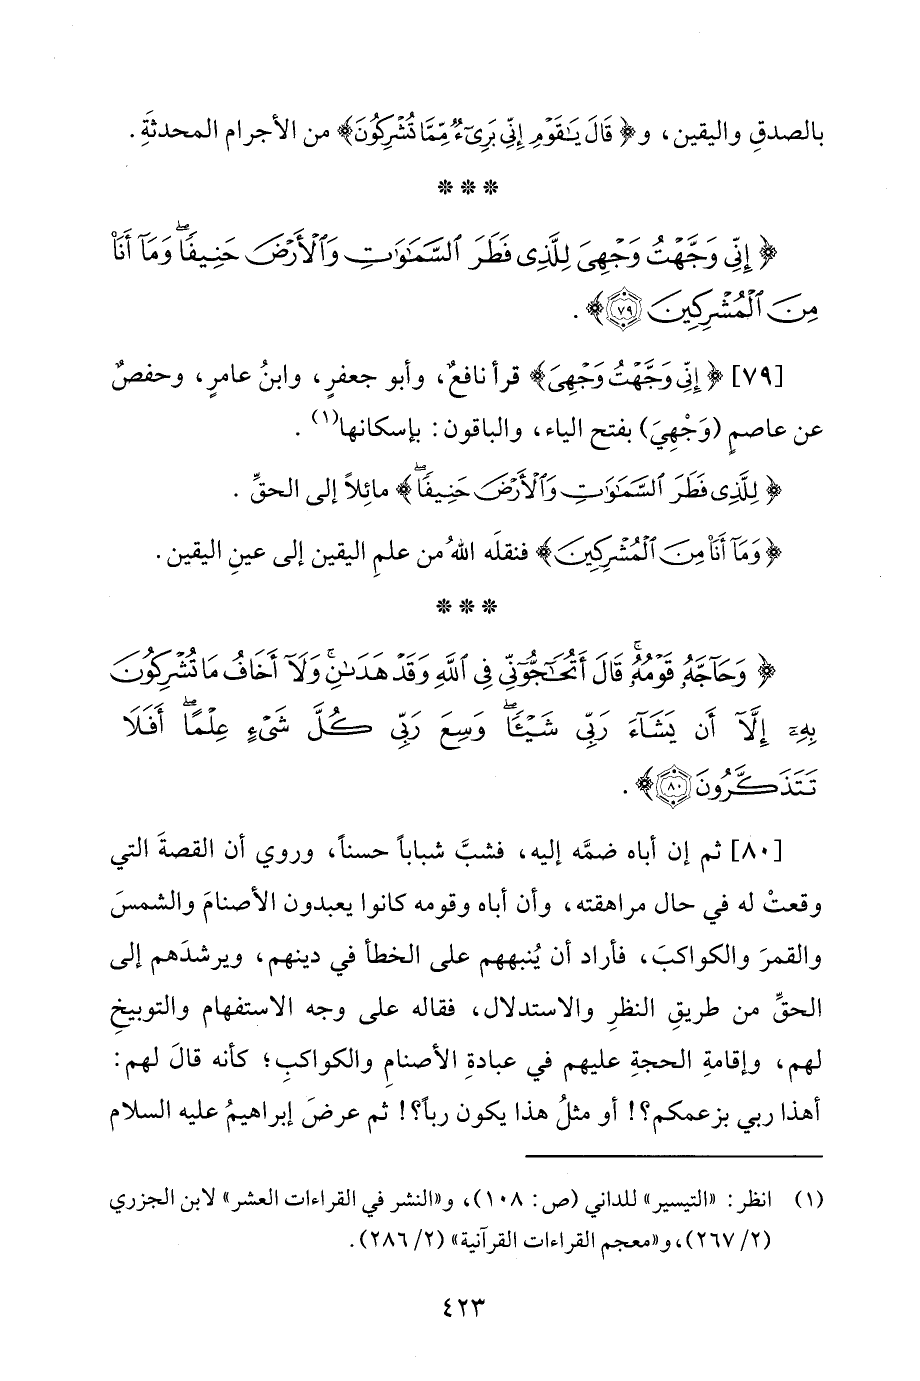 بالصدقِ واليقين، و﴿ قَالَ يَٰقَوْمِ إِنِّي بَرِيٓءٌ مِّمَّا تُشْرِكُونَ﴾ من الأجرام المحدثةِ.
* * *
﴿ إِنِّي وَجَّهْتُ وَجْهِيَ لِلَّذِي فَطَرَ ٱلسَّمَٰوَٰتِ وَٱلْأَرْضَ حَنِيفًاۖ وَمَآ أَنَا۠
مِنَ ٱلْمُشْرِكِينَ ٧٩﴾ .
[٧٩] ﴿ إِنِّي وَجَّهْتُ وَجْهِيَ﴾ قرأ نافعٌ، وأبو جعفرٍ، وابنُ عامرٍ، وحفصٌ
عن عاصمٍ (وَجْهِيَ) بفتح الياء، والباقون: بإسكانها(١) .
﴿ لِلَّذِي فَطَرَ ٱلسَّمَٰوَٰتِ وَٱلْأَرْضَ حَنِيفًاۖ﴾ مائِلاً إلى الحقِّ .
﴿ وَمَآ أَنَا۠ مِنَ ٱلْمُشْرِكِينَ﴾ فنقلَه اللهُ من علمِ اليقين إلى عينِ اليقين.
* * *
﴿ وَحَآجَّهُۥ قَوْمُهُۥۚ قَالَ أَتُحَٰٓجُّوٓنِّي فِي ٱللَّهِ وَقَدْ هَدَىٰنِۚ وَلَآ أَخَافُ مَا تُشْرِكُونَ
بِهِۦٓ إِلَّآ أَن يَشَآءَ رَبِّي شَيْـًٔاۖ وَسِعَ رَبِّي كُلَّ شَيْءٍ عِلْمًاۖ أَفَلَا
تَتَذَكَّرُونَ ٨٠﴾ .
[٨٠] ثم إن أباه ضمَّه إليه، فشبَّ شباباً حسناً، وروي أن القصةَ التي
وقعتْ له في حال مراهقته، وأن أباه وقومه كانوا يعبدون الأصنامَ والشمسَ
والقمرَ والكواكبَ، فأراد أن يُنبههم على الخطأ في دينهم، ويرشدَهم إلى
الحقِّ من طريقِ النظرِ والاستدلال، فقاله على وجه الاستفهام والتوبيخِ
لهم، وإقامةِ الحجةِ عليهم في عبادةِ الأصنامِ والكواكبِ؛ كأنه قالَ لهم:
أهذا ربي بزعمكم؟! أو مثلُ هذا يكون رباً؟! ثم عرضَ إبراهيمُ عليه السلام
(١) انظر: «التيسير» للداني (ص: ١٠٨)، و«النشر في القراءات العشر» لابن الجزري
(٢/ ٢٦٧)، و«معجم القراءات القرآنية» (٢/ ٢٨٦).
٤٢٣